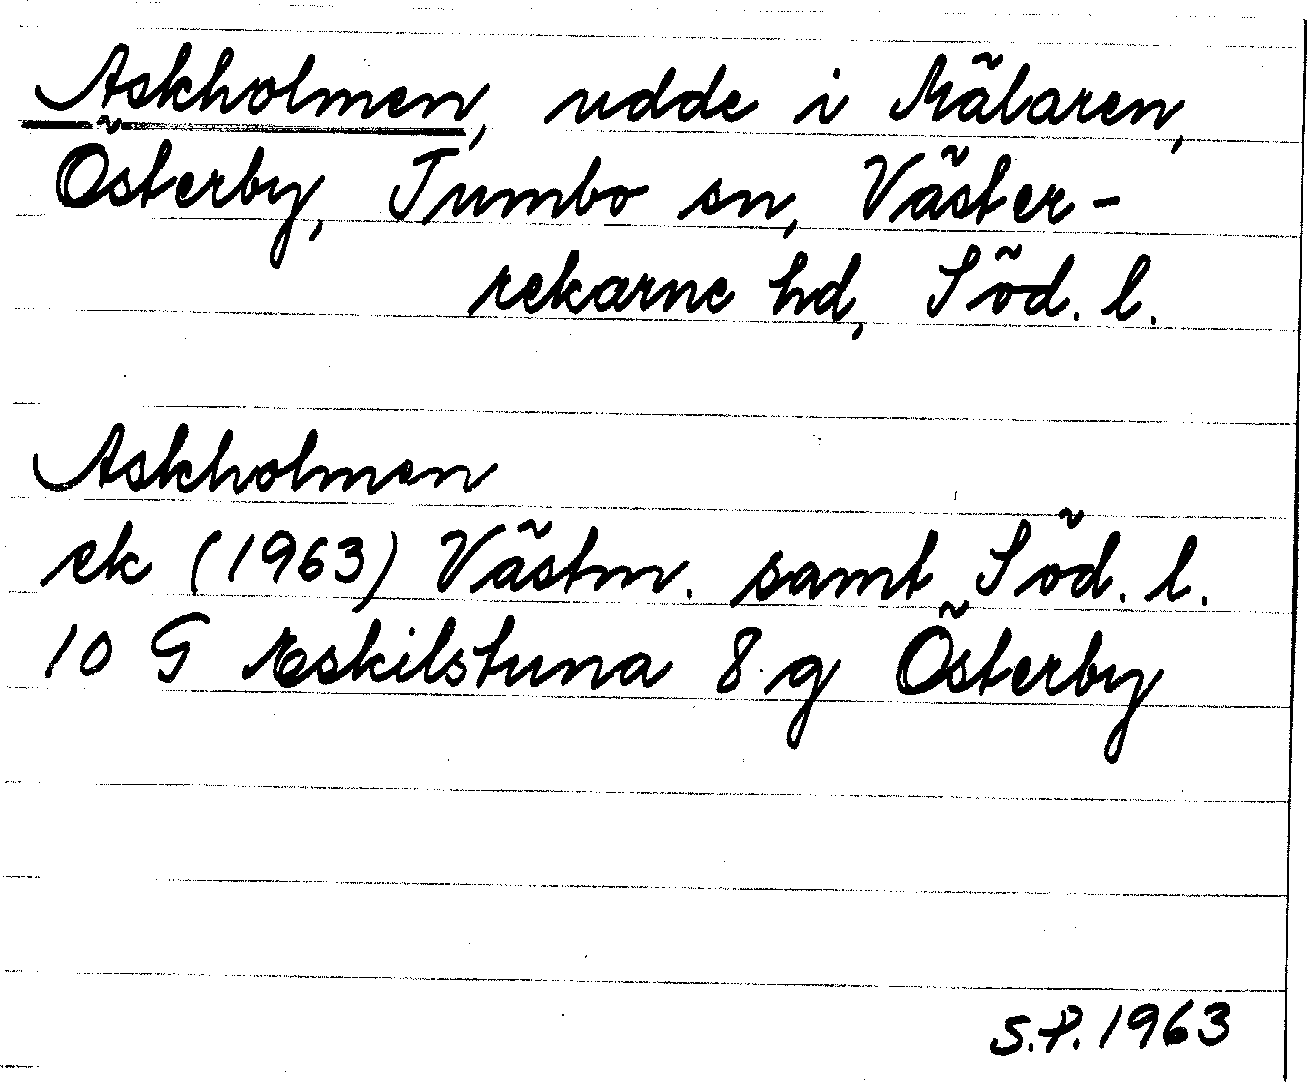 Askholmen, udde i Mälaren,
Österby, Tumbo sn, Väster-
rekarne hd, Söd. l.
Askholmen
ek (1963) Västm. samt Söd. l.
10 G Eskilstuna 8 g Österby
S.P. 1963